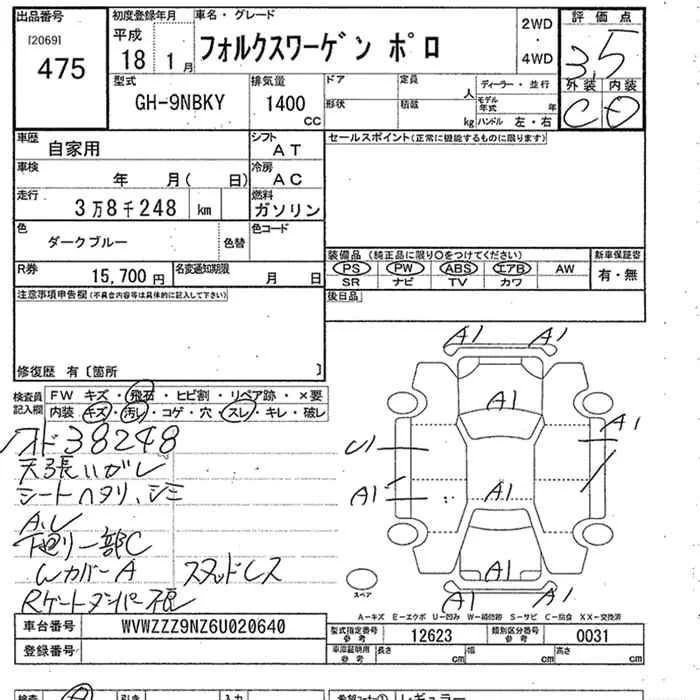 出品番号 初度登録年月 車名・グレード 2WD ・ 4WD 評価点
[2069]
475
平成 18 1月 フォルクスワーゲン ポロ 3.5
型式 排気量 ドア 定員 人 ディーラー・並行 外装 内装
GH-9NBKY 1400 CC 形状 積載 kg モデル年式 年 ハンドル 左・右 C D
車歴 自家用 シフト AT セールスポイント(正常に機能するものに限ります)
車検 年 月( 日) 冷房 AC
走行 3万8千248 km 燃料 ガソリン
色 ダークブルー 色替 色コード
装備品 (純正品に限り○をつけてください) 新車保証書
R券 15,700 円 名変通知期限 月 日 PS PW ABS エアB AW 有・無
SR ナビ TV カワ
注意事項申告欄(不具合内容等は具体的に記入して下さい) 後日品
修復歴 有〔箇所 〕
検査員記入欄 FW キズ・飛石・ヒビ割・リペア跡・×要
内装 キズ・汚レ・コゲ・穴・スレ・キレ・破レ
38248
天張ハガレ
シートヘタリ、シミ
A.U
下廻り一部C
Wカバー A スタッドレス
Rゲートダンパー不良
A1 A1
A1
A1
U1
A1 A1
A1
A1 A1
スペア
A-キズ E-エクボ U-凹み W-補修跡 S-サビ C-腐食 XX-交換済
車台番号 WVWZZZ9NZ6U020640 型式指定番号 参考 12623 類別区分番号 参考 0031
登録番号 車庫証明用 参考 長さ cm 幅 cm 高さ cm
検査 引き 入力 希望コーナー① レギュラー